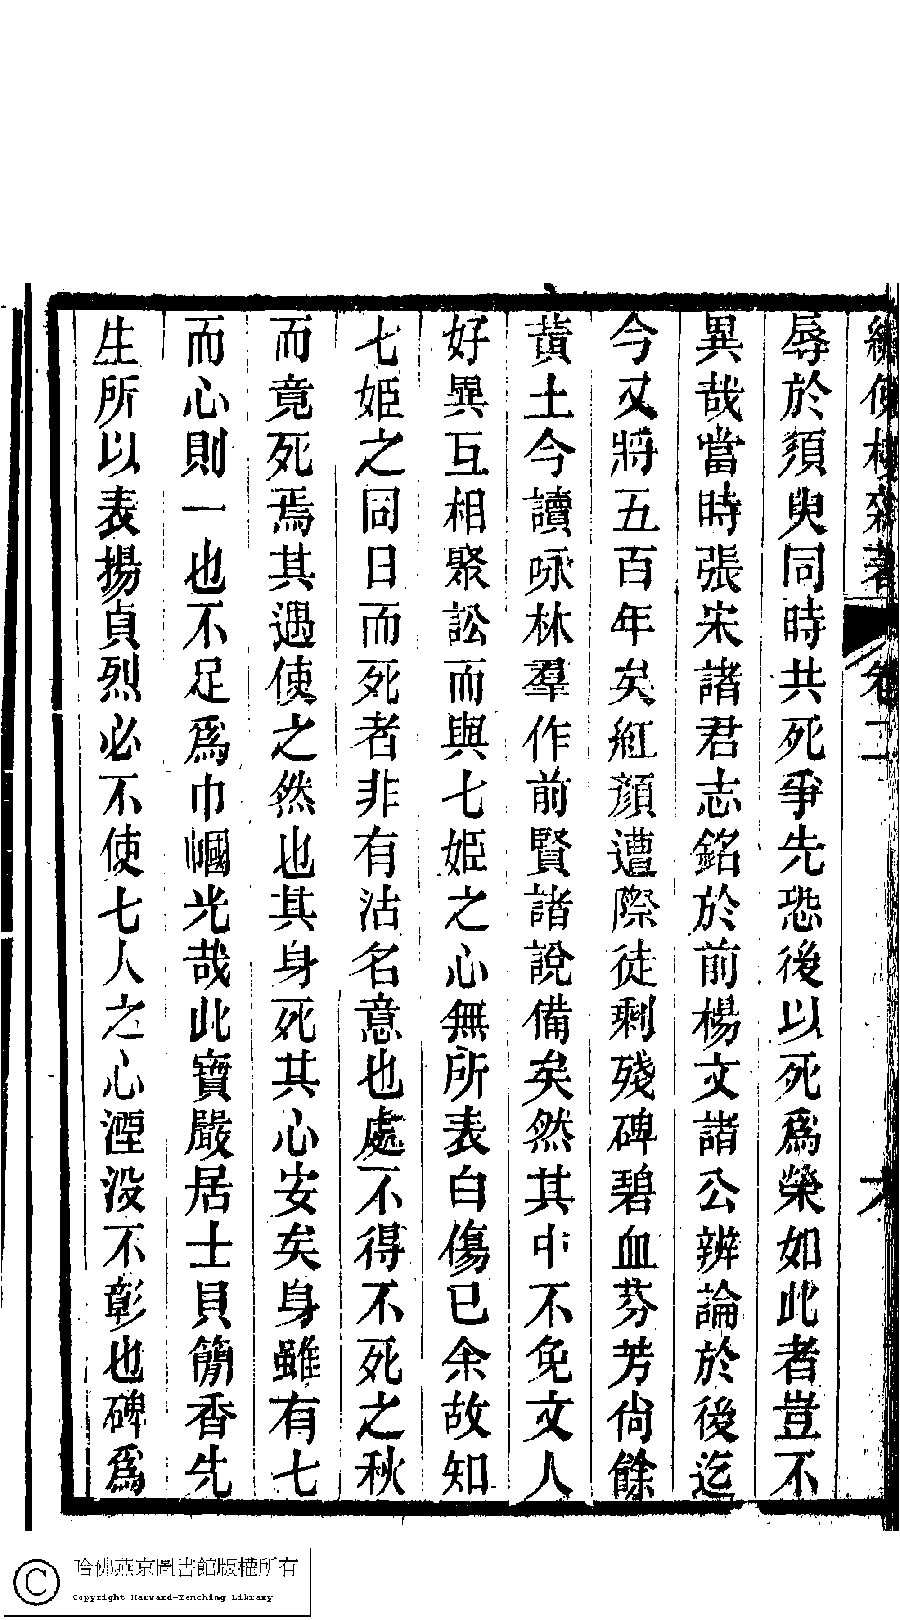 樓雜著 卷二
辱於須臾同時共死爭先恐後以死爲榮如此者豈不
異哉當時張宋諸君志銘於前楊文諸公辨論於後迄
今又將五百年矣紅顏遭際徒剩殘碑碧血芬芳尙餘
黃土今讀咏林羣作前賢諸說備矣然其中不免文人
好異互相聚訟而與七姬之心無所表白傷已余故知
七姬之同日而死者非有沽名意也處不得不死之秋
而竟死焉其遇使之然也其身死其心安矣身雖有七
而心則一也不足爲巾幗光哉此寶嚴居士貝簡香先
生所以表揚貞烈必不使七人之心湮沒不彰也碑爲
© 哈佛燕京圖書館版權所有
Copyright Harvard-Yenching Library